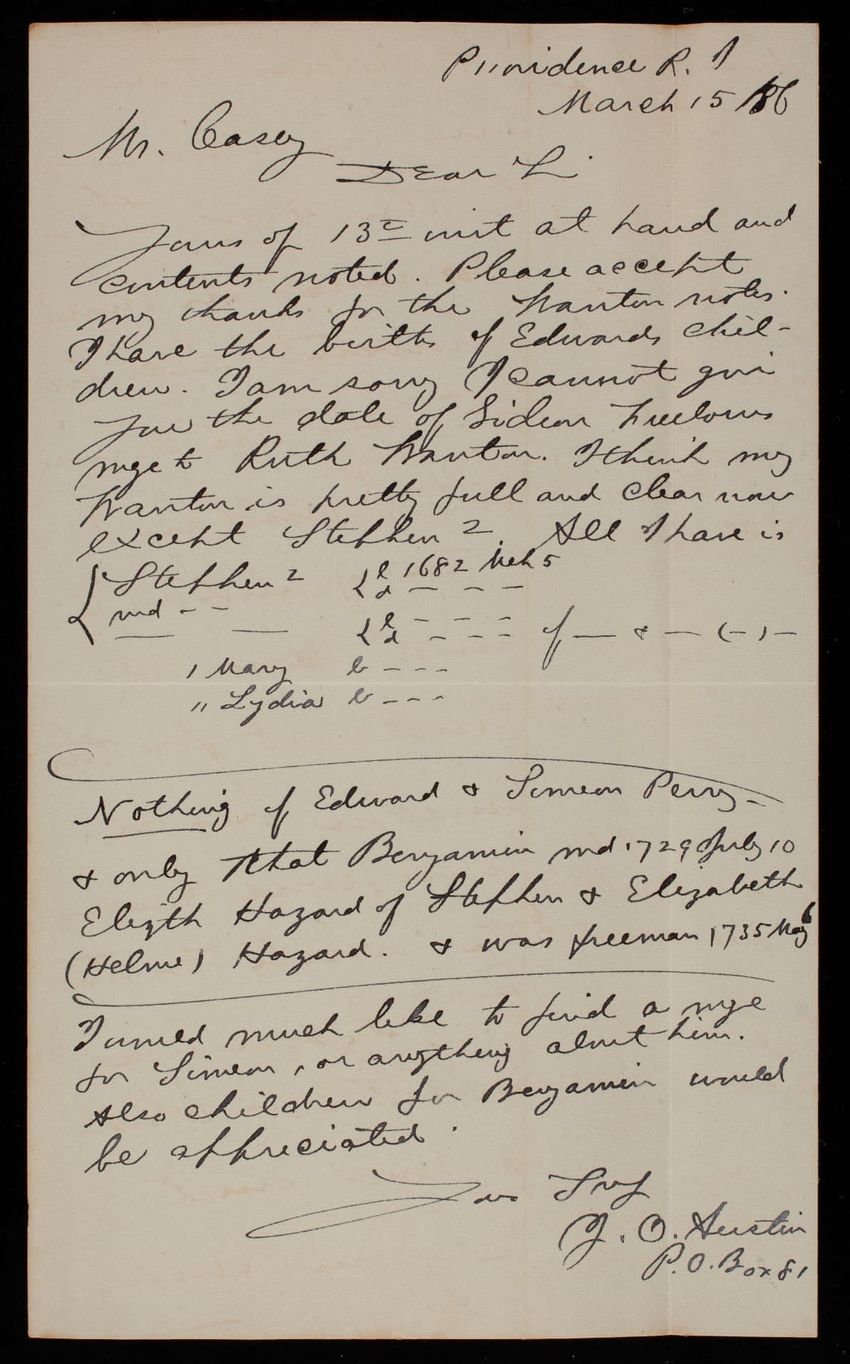 Providence R. I
March 15 / 86
Mr. Casey
Dear Sir
Yours of 13th inst at hand and
contents noted. Please accept
my thanks for the Wanton notes.
I have the births of Edwards chil-
dren. I am sorry I cannot give
you the date of Gideon Freeborns
mge to Ruth Wanton. I think my
Wanton is pretty full and clear now
except Stephen 2. All I have is
{ Stephen 2 { b 1682 Mch 5
d - - -
md - -
— — { b - - -
d - - - of — & — (—) —
1 Mary b - - -
" Lydia b - - -
Nothing of Edward & Simeon Perry -
& only that Benjamin md 1729 July 10
Elizth Hazard of Stephen & Elizabeth
(Helme) Hazard. & was freeman 1735 May 6
I would much like to find a mge
for Simeon, or anything about him.
Also children for Benjamin would
be appreciated.
Yours Truly
J. O. Austin
P.O. Box 81